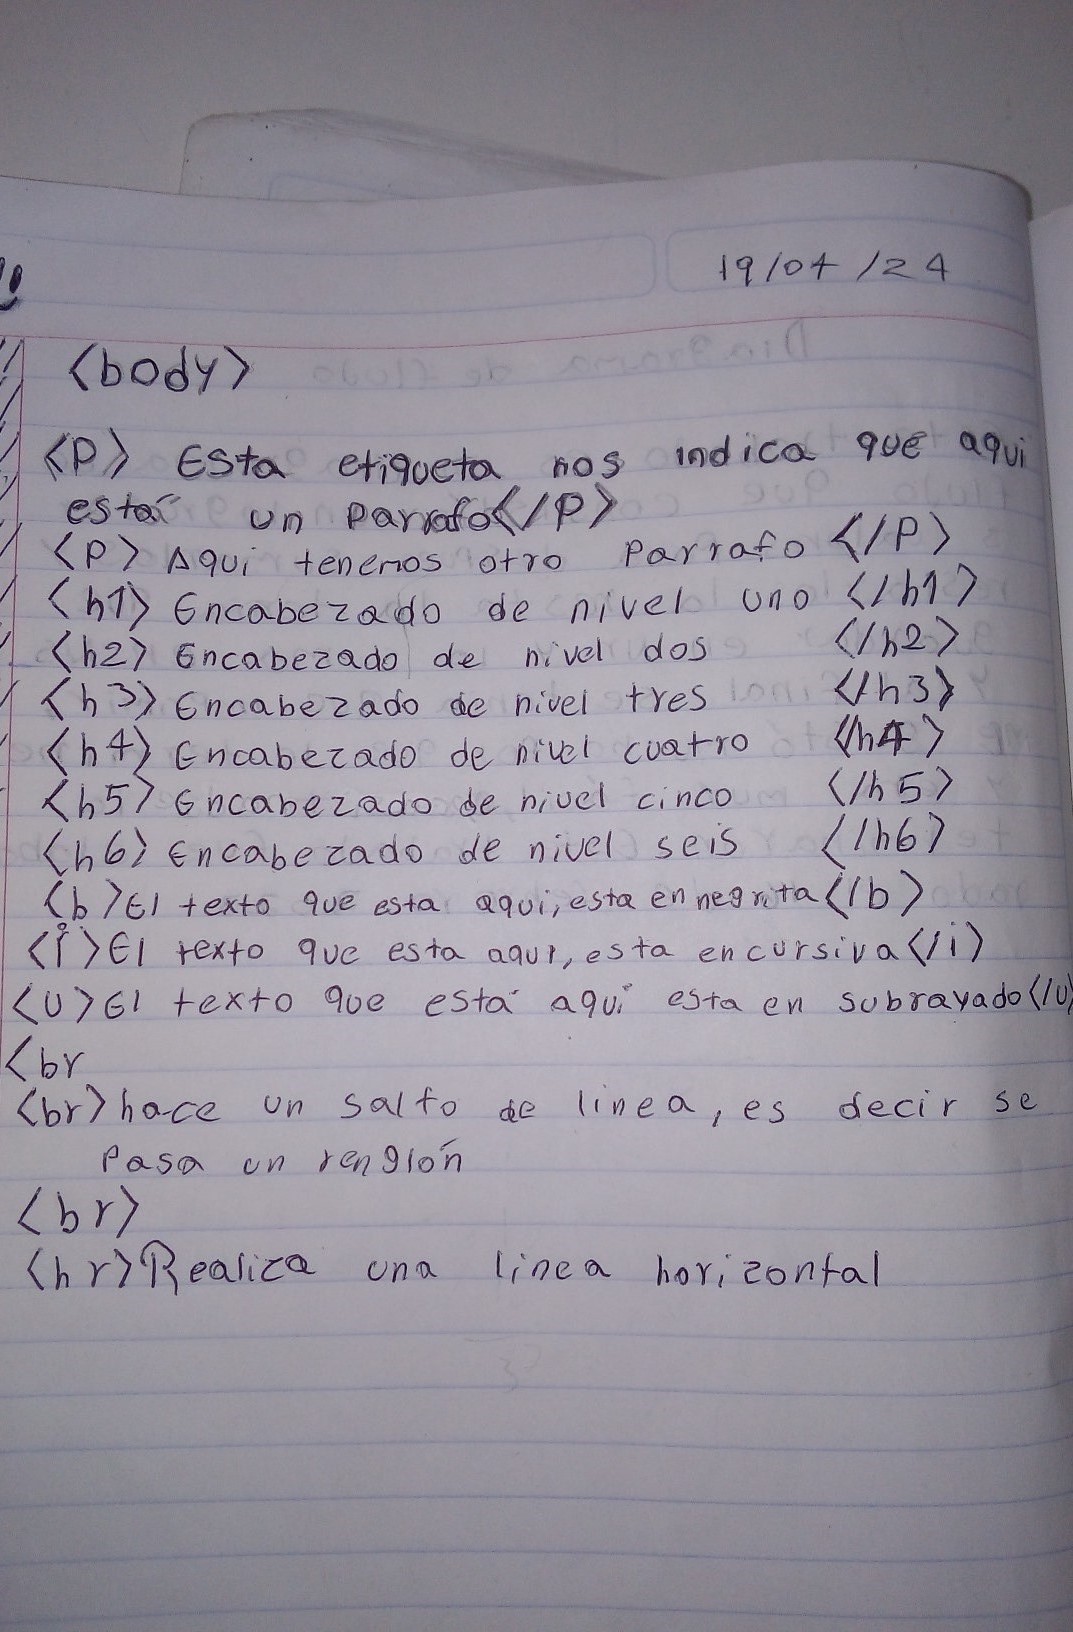 19/04/24
<body>
<P> Esta etiqueta nos indica que aqui
está un Parrafo</P>
<P> Aqui tenemos otro Parrafo </P>
<h1> Encabezado de nivel uno </h1>
<h2> Encabezado de nivel dos </h2>
<h3> Encabezado de nivel tres </h3>
<h4> Encabezado de nivel cuatro </h4>
<h5> Encabezado de nivel cinco </h5>
<h6> Encabezado de nivel seis </h6>
<b>El texto que esta aqui, esta en negrita</b>
<i>El texto que esta aqui, esta en cursiva</i>
<U>El texto que está aqui esta en subrayado</U>
<br
<br>hace un salto de linea, es decir se
Pasa un renglón
<br>
<hr>Realiza una linea horizontal